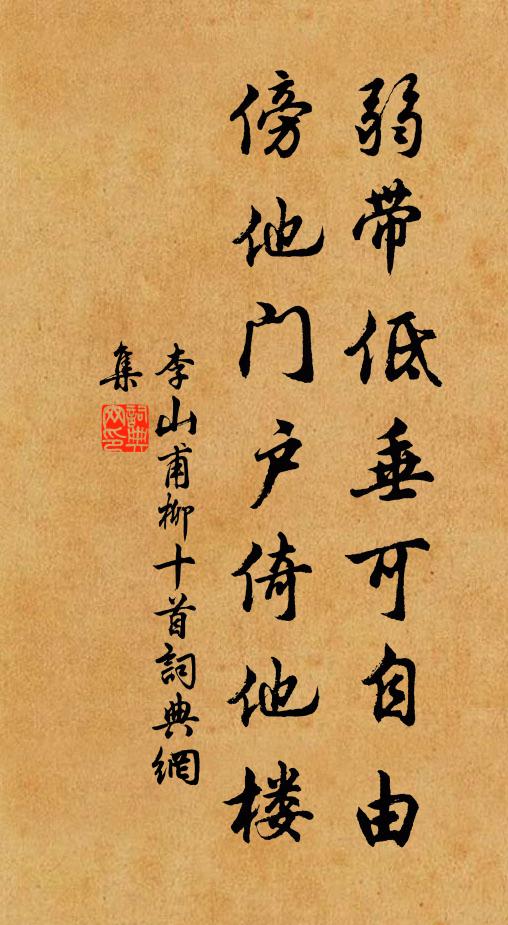 弱带低垂可自由
傍他门户倚他楼
李山甫柳十首詞典網
集
詞典网印